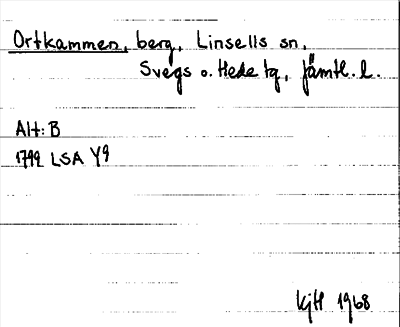 Ortkammen, berg, Linsells sn,
Svegs o. Hede tg, Jämtl. l.
Alt: B
1792 LSA Y9
KjH 1968